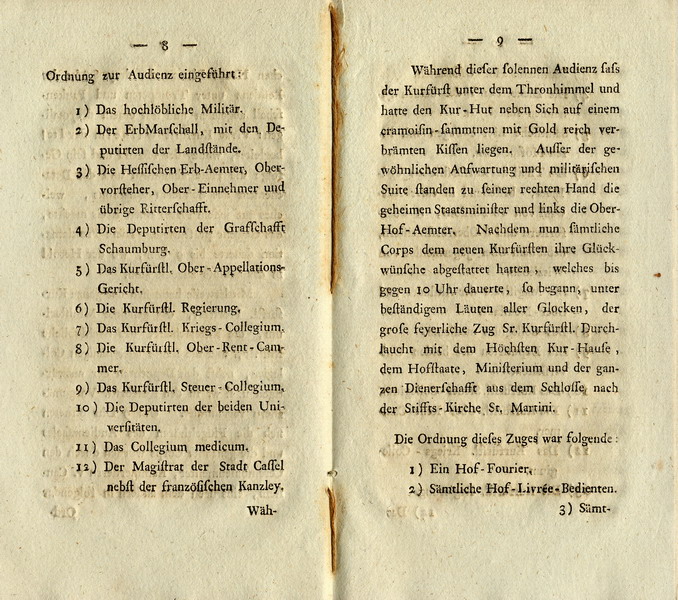 — 8 —
Ordnung zur Audienz eingeführt:
1) Das hochlöbliche Militär.
2) Der ErbMarſchall, mit den De-
putirten der Landſtände.
3) Die Heſſiſchen Erb-Aemter, Ober-
vorſteher, Ober-Einnehmer und
übrige Ritterſchafft.
4) Die Deputirten der Graffſchafft
Schaumburg.
5) Das Kurfürſtl. Ober-Appellations-
Gericht.
6) Die Kurfürſtl. Regierung.
7) Das Kurfürſtl. Kriegs-Collegium.
8) Die Kurfürſtl. Ober-Rent-Cam-
mer.
9) Das Kurfürſtl. Steuer-Collegium.
10) Die Deputirten der beiden Uni-
verſitäten.
11) Das Collegium medicum.
12) Der Magiſtrat der Stadt Caſſel
nebſt der franzöſiſchen Kanzley.
Wäh-
— 9 —
Während dieſer ſolennen Audienz ſaſs
der Kurfürſt unter dem Thronhimmel und
hatte den Kur-Hut neben Sich auf einem
cramoiſin-ſammtnen mit Gold reich ver-
brämten Kiſſen liegen. Auſſer der ge-
wöhnlichen Aufwartung und militäriſchen
Suite ſtanden zu ſeiner rechten Hand die
geheimen Staatsminiſter und links die Ober-
Hof-Aemter. Nachdem nun ſämtliche
Corps dem neuen Kurfürſten ihre Glück-
wünſche abgeſtattet hatten, welches bis
gegen 10 Uhr dauerte, ſo begann, unter
beſtändigem Läuten aller Glocken, der
groſe feyerliche Zug Sr. Kurfürſtl. Durch-
laucht mit dem Höchſten Kur-Hauſe,
dem Hofſtaate, Miniſterium und der gan-
zen Dienerſchafft aus dem Schloſſe nach
der Stiffts-Kirche St. Martini.
Die Ordnung dieſes Zuges war folgende:
1) Ein Hof-Fourier.
2) Sämtliche Hof-Livrée-Bedienten.
3) Sämt-